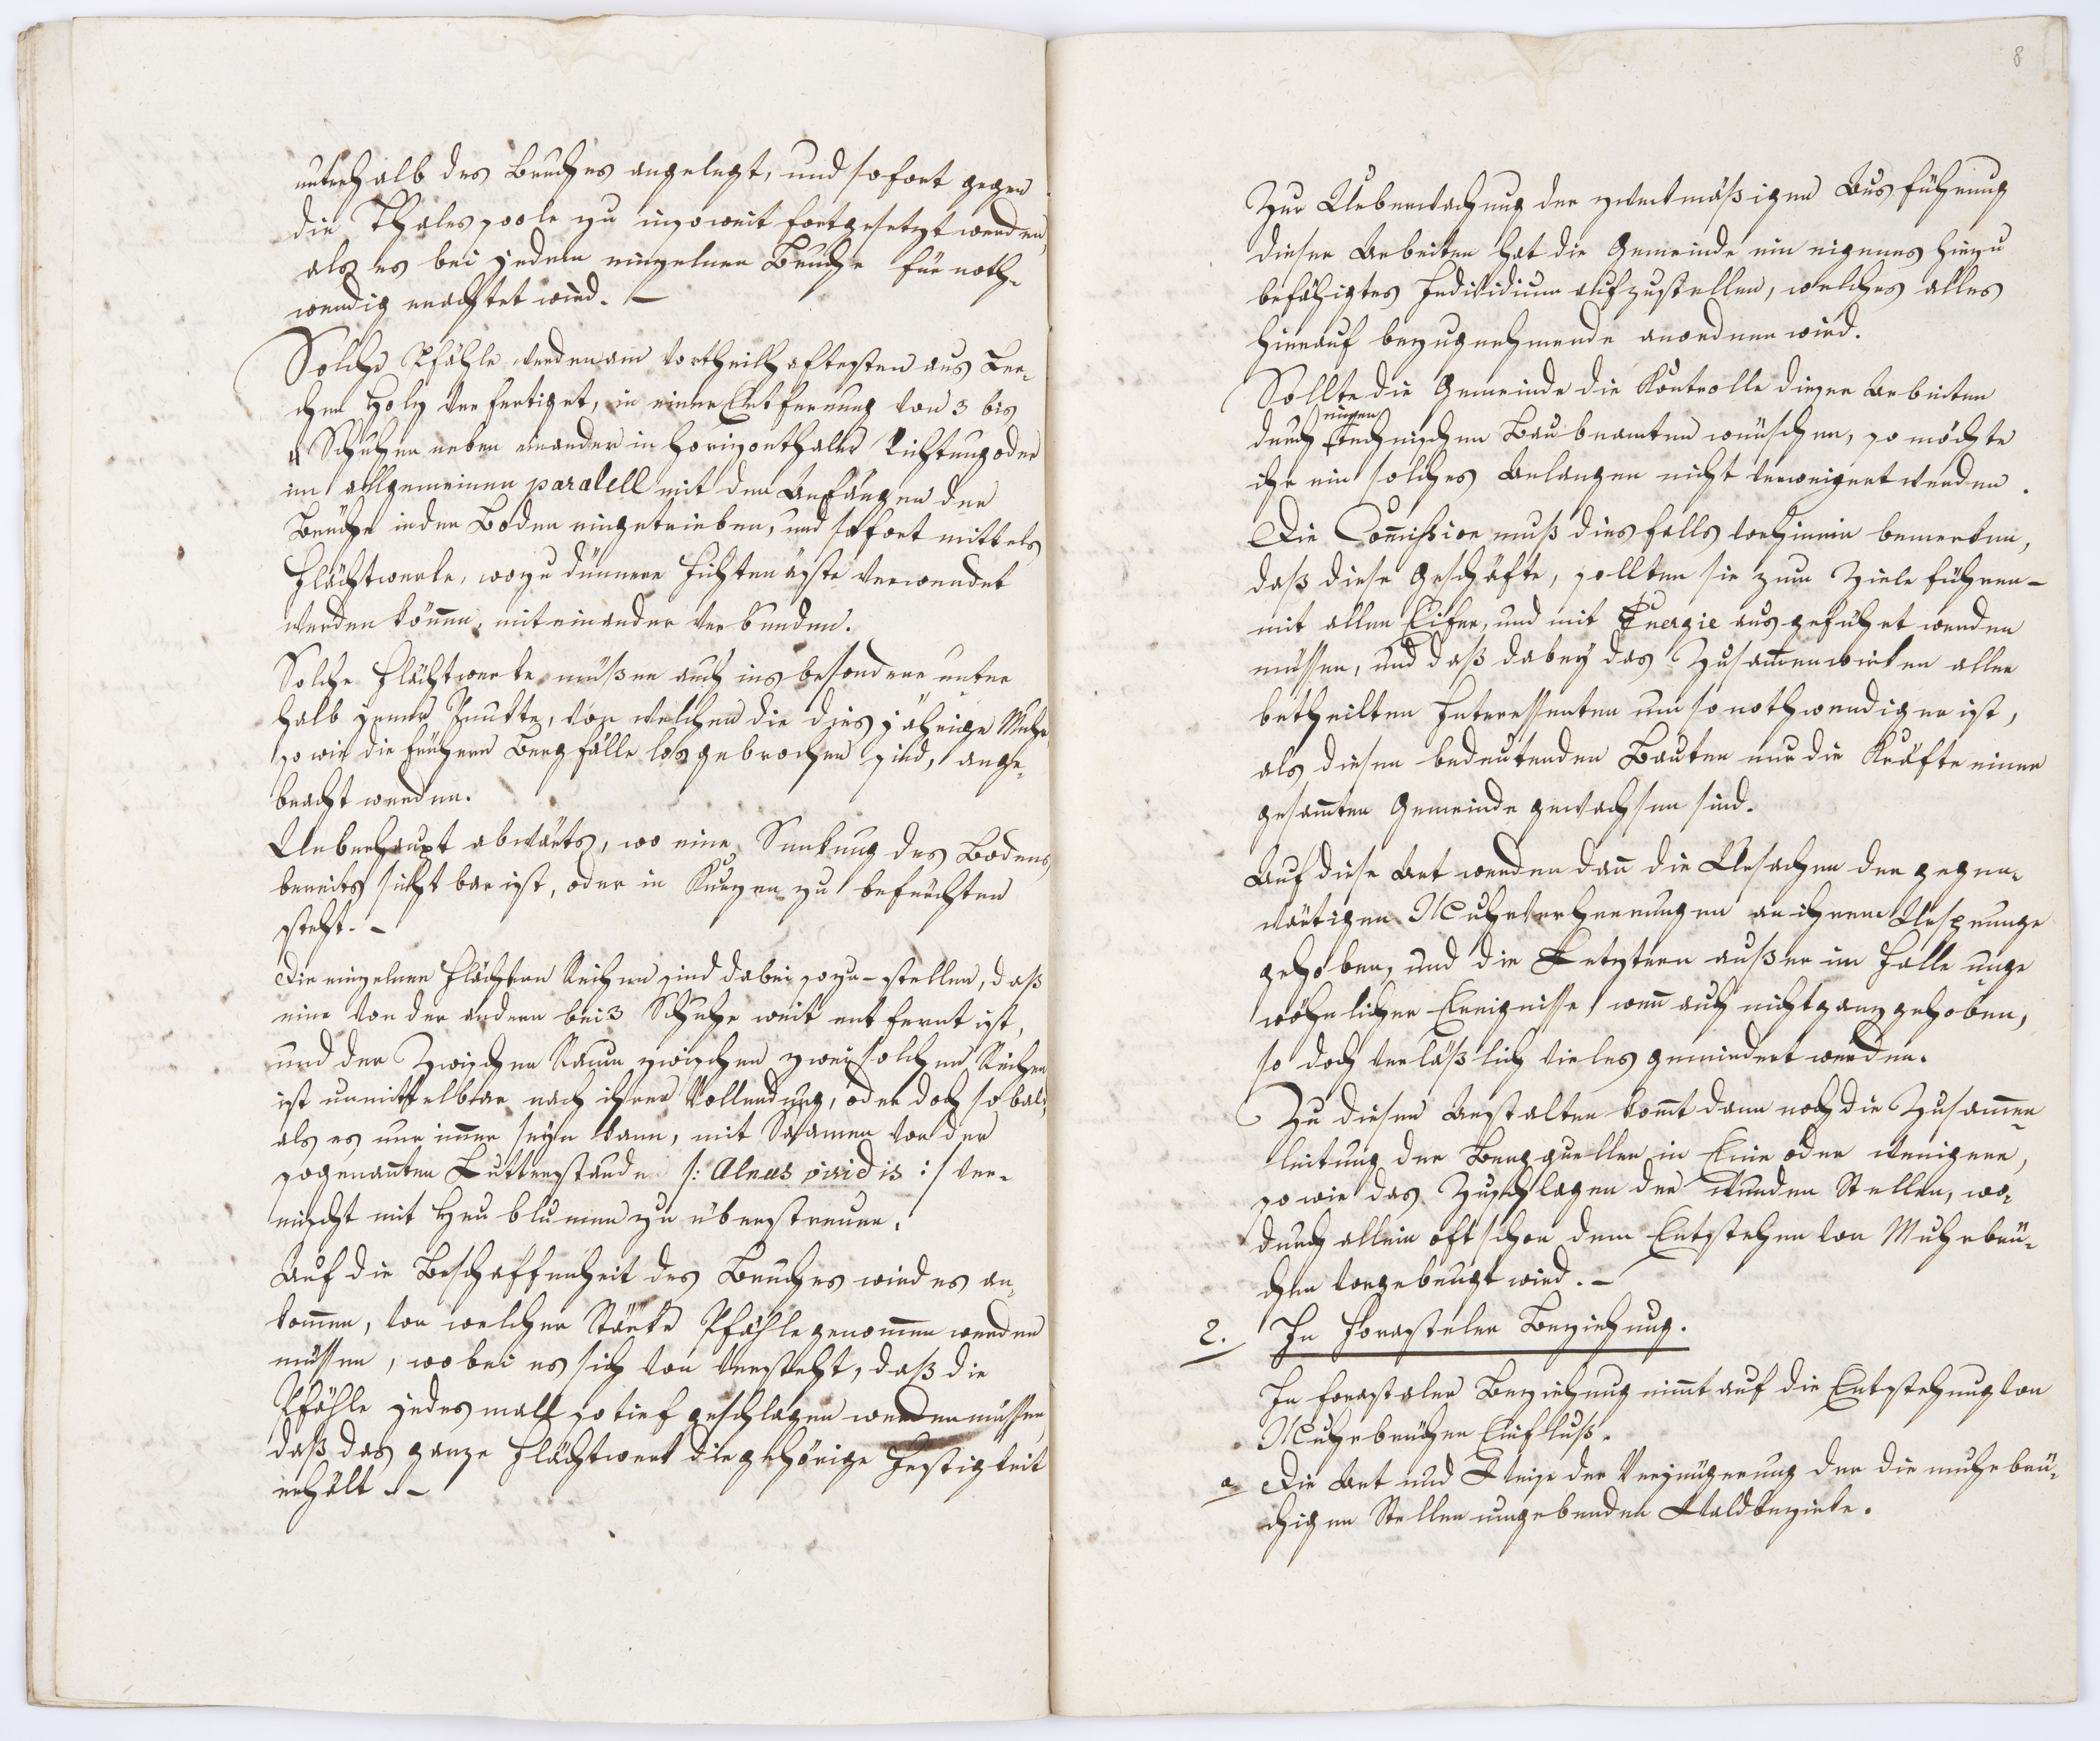 unterhalb des Bruches angelegt, und sofort gegen
die Thalessoole zu insoweit fortgesetzt werden,
als es bei jedem einzelnen Bruche für noth-
wendig erachtet wird. –
Solche Pfähle werden am vortheilhaftesten aus Ler-
chen Holz verfertiget, in einer Entfernung von 3 bis
4 Schuhen neben einander in horizonthaler Richtung oder
im allgemeinen paralell mit den Anfängen der
Brüche in den Boden eingetrieben, und sofort mittels
Flächtwerke, wozu dünnere Fichtenäste verwendet
werden können, mit einander verbunden.
Solche Flächtwerke müßen auch insbesondere unter
halb jener Punkte, von welchen die diesjährige Muhr
so wie die frühern Bergfälle losgebrochen sind, ange-
bracht werden.
Ueberhaupt abwärts, wo eine Senkung des Bodens
bereits sichtbar ist, oder in Kurzen zu befürchten
steht. –
Die einzelnen Flächten Reihen sind dabei so zu – stellen, daß
eine von der andern bei 3 Schuhe weit entfernt ist,
und der Zwischen Raum zwischen zwei solchen Reihen
ist unmittelbar nach ihrer Vollendung, oder doch sobald
als es nur immer seyn kann, mit Saamen von der
sogenannten Lutterstaude /: Alnus viridis :/ ver-
mischt mit Heublumen zu überstreuen.
Auf die Beschaffenheit des Bruches wird es an-
kommen, von welcher Stärke Pfähle genommen werden
müssen, wobei es sich von versteht, daß die
Pfähle jedesmall so tief geschlagen werden müssen,
daß das ganze Flächtwerk die gehörige Festigkeit
erhält. –
8
Zur Ueberwachung der zweckmäßigen Ausführung
dieser Arbeiten hat die Gemeinde ein eigenes hiezu
befähigtes Individium aufzustellen, welches alles
hierauf bezugnehmende anordnen wird.
Sollte die Gemeinde die Kontrolle dieser Arbeiten
einen
durch technischen Baubeamten wünschen, so möchte
ihr ein solches Anlangen nicht verweigert werden.
Die Commission muß diesfalls vorhinein bemerken,
daß diese Geschäfte, sollten sie zum Ziele führen –
mit allen Eifer, und mit Energie ausgeführt werden
müssen, und daß dabey das Zusammenwirken aller
betheilten Interessenten um so nothwendiger ist,
als diesen bedeutenden Bauten nur die Kräfte einer
gesammten Gemeinde gewachsen sind.
Auf diese Art werden dann die Ursachen der gegen-
wärtigen Muhrverherrungen an ihrem Ursprunge
gehoben, und die Letztern außer im Falle unge
wöhnlicher Ereignisse, wenn auch nicht ganz gehoben,
so doch verläßlich vieles gemindert werden.
Zu diesen Anstalten kommt dann noch die Zusammen-
leitung der Bergquellen in Eine oder wenigere,
so wie das Zuschlagen der wunden Stellen, wo-
durch allein oft schon dem Entstehen von Muhrbrü-
chen vorgebeugt wird. –
2. In forastaler Beziehung.
In forastaler Beziehung nimmt auf die Entstehung von
Muhrbrüchen Einfluß.
a Die Art und Weise der Verjüngerung der die muhrbrü-
chigen Stellen umgebenden Waldbezirke.